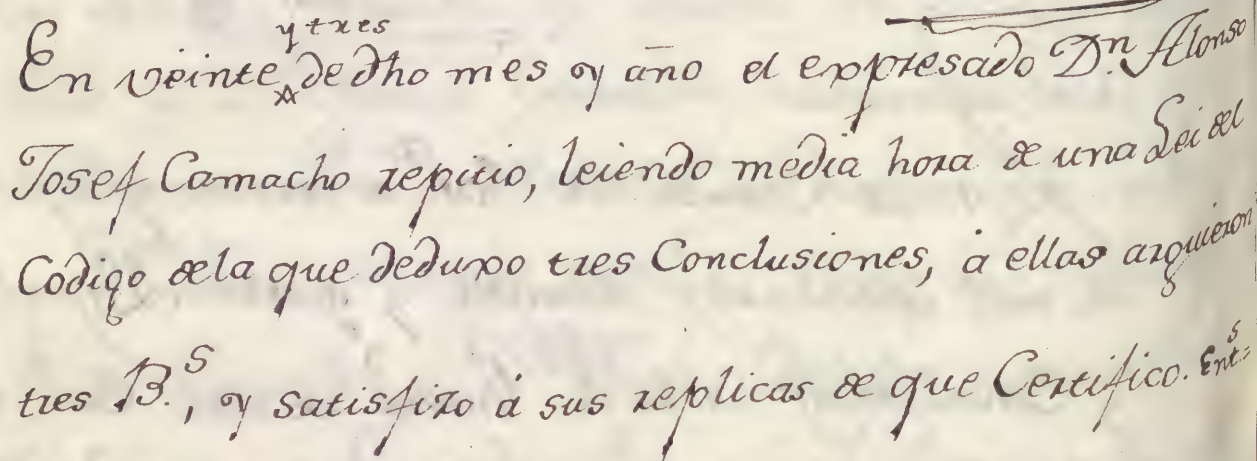 y tres
En veinte de dho mes y año el expresado Dn. Alonso
Josef Camacho repitio, leiendo media hora de una Lei del
Codigo dela que deduxo tres Conclusiones, à ellas arguieron
tres B.s, y satisfizo à sus replicas de que Certifico. Ent.s=